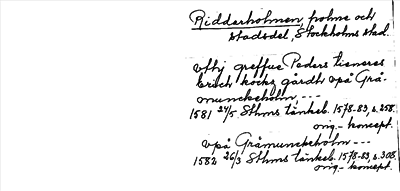 Ridderholmen, holme och
stadsdel, Stockholms stad.
Uthj greffue Peders tieneres
Erich kockz gårdh vpå Grå-
munckeholm, ---
1581 24/5 Sthms tänkeb. 1578-83, s. 258.
orig.- koncept.
vpå Gråmunckeholm ---
1582 26/3 Sthms tänkeb. 1578-83, s. 308.
orig.- koncept.